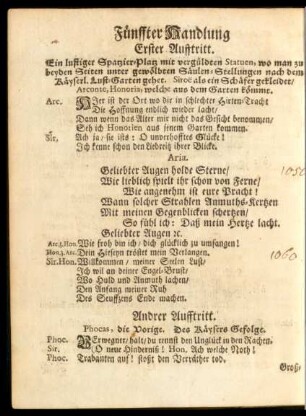 Fünffter Handlung
Erster Aufftritt.
Ein lustiger Spatzier-Platz mit vergüldten Statuen, wo man zu
beyden Seiten unter gewölbten Säulen-Stellungen nach dem
Käyserl. Lust-Garten gehet. Siroë als ein Schäfer gekleidet/
Arconte, Honoria, welche aus dem Garten kömmt.
Arc. HIer ist der Ort wo die in schlechter Hirten-Tracht
Die Hoffnung endlich wieder lacht/
Dann wenn das Alter mir nicht das Gesicht benommen/
Seh ich Honorien aus jenem Garten kommen.
Sir. Ach ja/ sie ists: O unverhofftes Glück!
Ich kenne schon den Liebreitz ihrer Blicke.
Aria.
Geliebter Augen holde Sterne/ 1050
Wie lieblich spielt ihr schon von Ferne/
Wie angenehm ist eure Pracht!
Wann solcher Strahlen Anmuths-Kertzen
Mit meinen Gegenblicken schertzen/
So fühl ich: Daß mein Hertze lacht.
Geliebter Augen ec.
Arc. à Hon. Wie froh bin ich/ dich glücklich zu umfangen!
Hon. à Arc. Dein Hierseyn tröstet mein Verlangen.
Sir. Hon. Willkommen/ meiner Seelen Lust/ 1060
Ich wil an deiner Engel-Brust/
Wo Huld und Anmuth lachen/
Den Anfang meiner Ruh
Des Seuffzens Ende machen.
Andrer Aufftritt.
Phocas, die Vorige. Des Käysers Gefolge.
Phoc. VErwegner/ halt/ du rennst den Unglück in den Rachen.
Sir. O neue Hinderniß! Hon. Ach welche Noth!
Phoc. Trabanten auf! stoßt den Verräther tod.
Groß-